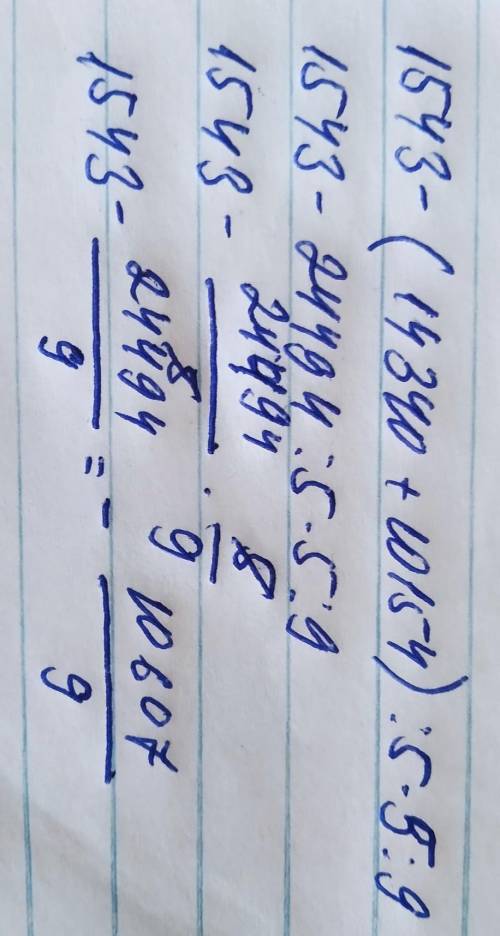 1543 - (14340 + 10154) : 5 · 5 : 9
1543 - 24494 : 5 · 5 : 9
1543 - 24494/5 · 5/9
1543 - 24494/9 = - 10607/9